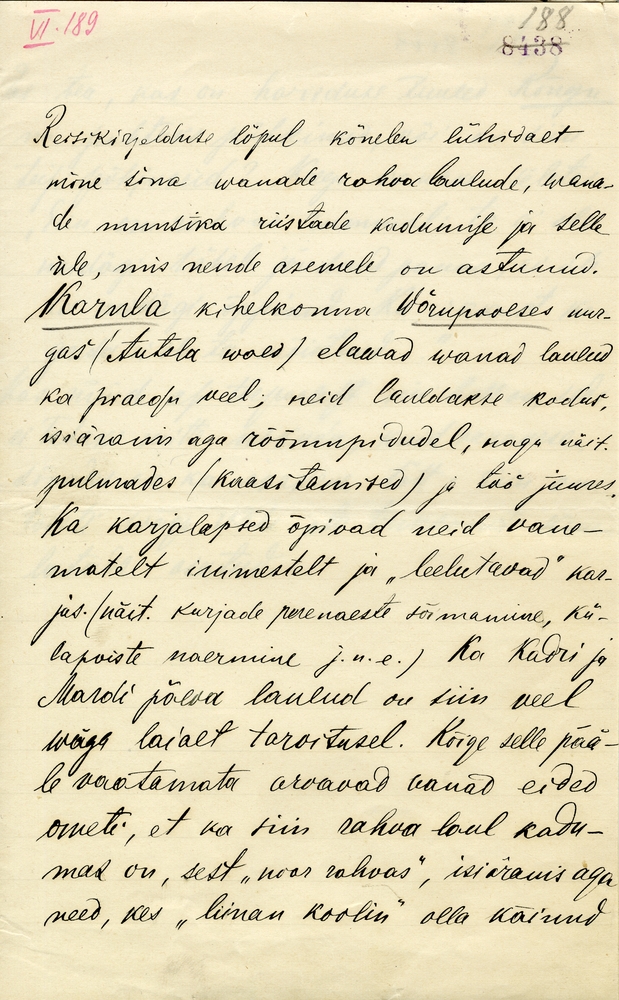 VI. 189
188
8438
Reisikirjelduse lõpul kõnelen lühidalt
mõne sõna wanade rahva laulude, wana-
de muusika riistade kadumise ja selle
üle, mis nende asemele on astunud.
Karula kihelkonna Wõrupoolses nur-
gas (Antsla wald) elawad wanad laulud
ka praegu veel; neid lauldakse kodus,
isiäranis aga rõõmupidudel, nagu näit.
pulmades (kaasitamised) ja töö juures.
Ka karjalapsed õpivad neid vane-
matelt inimestelt ja „leelutavad" kar-
jas. (näit. kurjade perenaeste sõimamine, kü-
lapoiste naermine j.n.e.) Ka Kadri ja
Mardi päeva laulud on siin veel
wäga laialt tarvitusel. Kõige selle pää-
le vaatamata arvavad vanad eided
ometi, et ka siin rahva laul kadu-
mas on, sest „noor rahvas", isiäranis aga
need, kes „liinan koolin" olla käinud